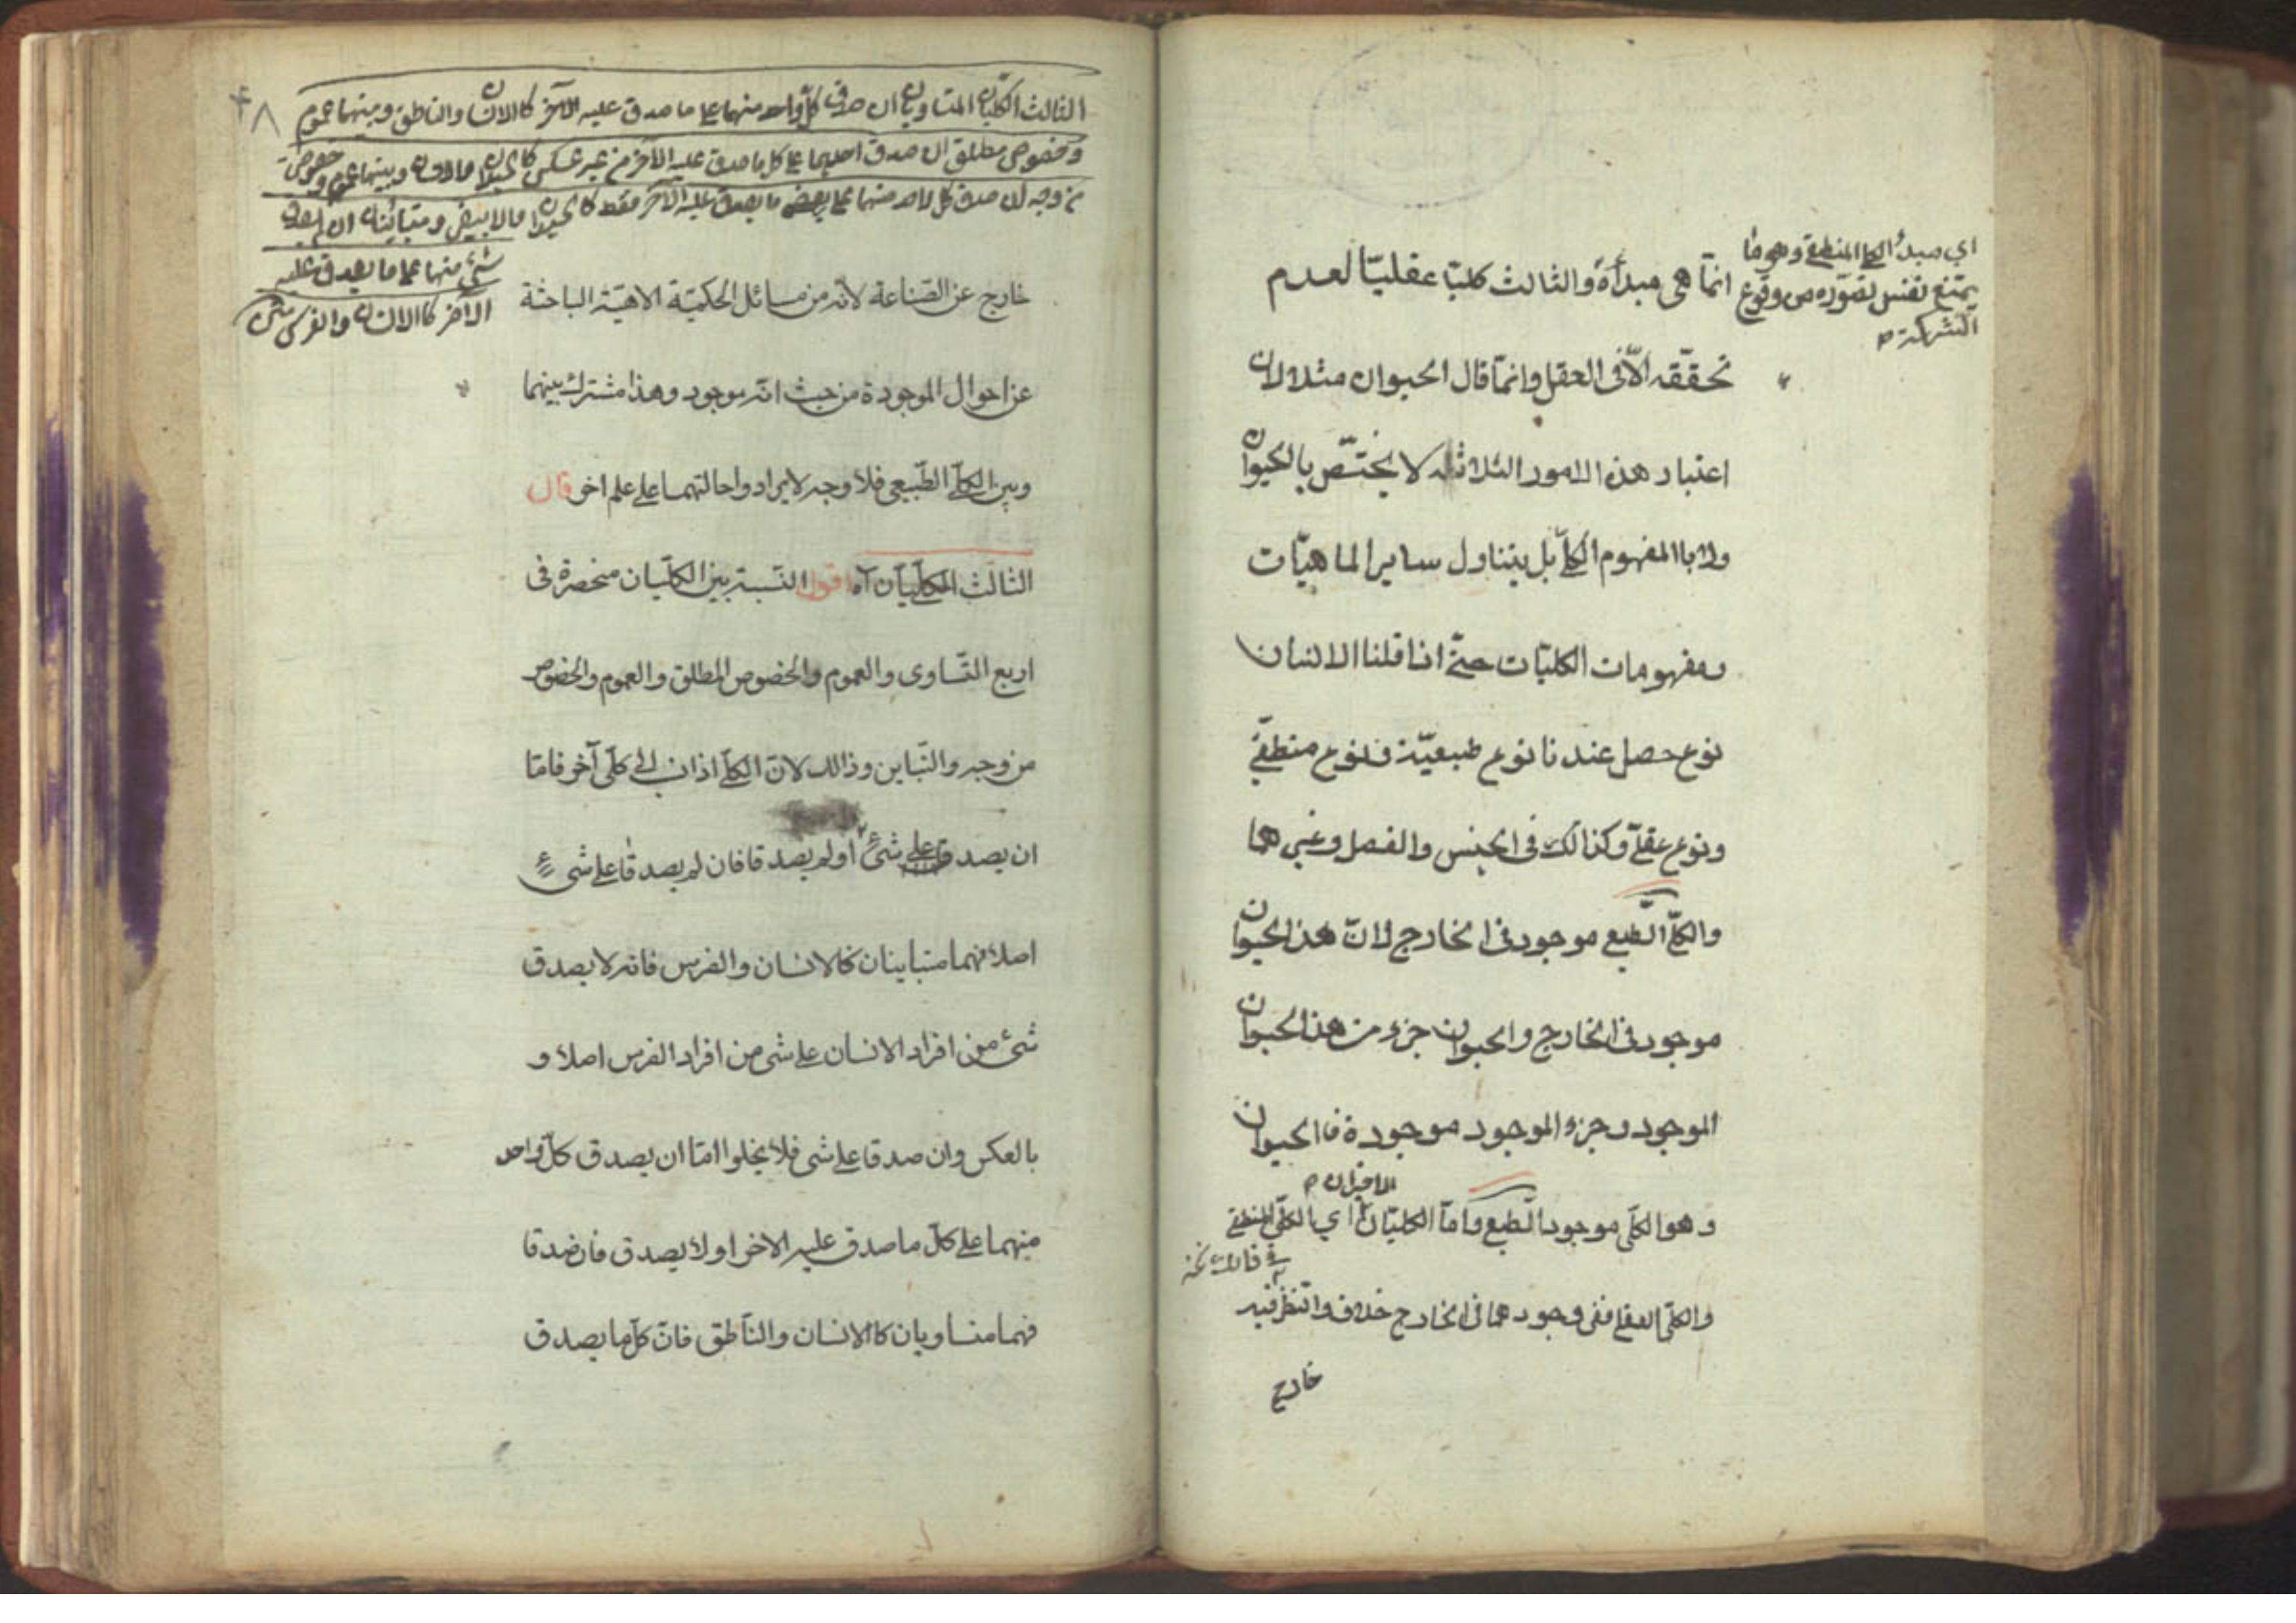 اي مبدأ الكلي المنطقي وهي ما
يمتنع نفس تصوره من وقوع
الشركة م
انمّا هى مبدأة والثالث كليّا عقليّا لعدم
تحقّقه الّا فى العقل وانمّا قال الحيوان مثلا لان
اعتبار هذه الامور الثلاثة لا يختّص بالحيوان
ولا باالمفهوم الكلّى بل يتناول ساير الماهيّات
ومفهومات الكليّات حتّى اذا قلنا الانسان
نوع حصل عندنا نوع طبيعيّة فنوع منطقىّ
ونوع عقلىّ وكذالك فى الجنس والفصل وغيرهما
والكلّى الطّبع موجود فى الخارج لانّ هذا الحيوان
موجود فى الخارج والحيوان جزء من هذا الحيوان
الموجود وجزء الموجود موجودة فاالحيوان
الاخيران م
وهوا الكلّى موجود الطّبع وامّا الكليّان اي الكلّى المنطقى
والكلّى العقلى ففى وجودهما فى الخارج خلاف والنّظر فيه
خارج
الثالث الكليّان المتساويان ان صدق كلّ واحد منهما على ما صدق عليه الآخر كاالانسان والناطق وبينهما عموم
وخصوص مطلق ان صدق احديهما على كل ما صدق عليه الآخر من غير عكس كالحيوان والانسان وبينهما عموم وخصوص
من وجه ان صدق كل واحد منهما على بعض ما يصدق عليه الآخر فقط كالحيوان والابيض ومتباينان ان لم يصدق
شيء منهما على ما يصدق عليه
الآخر كاالانسان والفرس متن
خارج عن الصّناعة لانّه من مسائل الحكميّة الاهيّة الباحثة
عن احوال الموجودة من حيث انّه موجود وهذا مشترك بينهما
وبين الكلّى الطّبيعى فلا وجه لايراد واحالتهما على علم اخر قال
الثالث الكليّان آه اقول النّسبة بين الكليّان منحصرة فى
اربع التّساوى والعموم والخصوص المطلق والعموم والخصوص
من وجه والتّباين وذالك لانّ الكلّى اذا نسب الى كلّى آخر فامّا
ان يصدقا على شئ او لم يصدقا فان لم يصدقا على شىء
اصلا فهما متباينان كاالانسان والفرس فانّه لا يصدق
شئ من افراد الانسان على شى من افراد الفرس اصلا و
بالعكس وان صدقا على شى فلا يخلوا امّا ان يصدق كلّ واحد
منهما على كلّ ما صدق عليه الاخر او لا يصدق فان صدقا
فهما متساويان كاالانسان والنّاطق فانّ كلّ ما يصدق